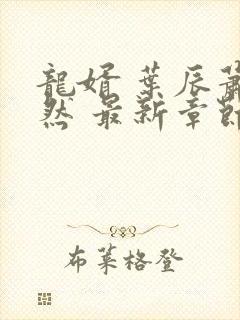 龍婿 葉辰蕭
然 最新章節
布萊格登